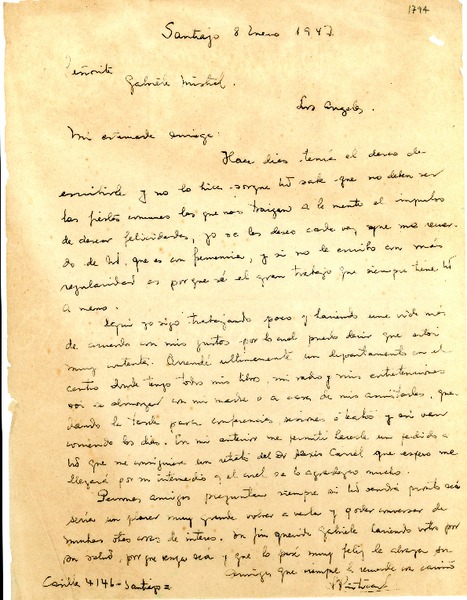 1794
Santiago 8 Enero 1947.
Señorita
Gabriela Mistral.
Los Angeles.
Mi estimada amiga:
Hace dias tenía el deseo de
escribirle y no lo hice porque Ud sabe que no deben ser
las fiestas comunes las que nos traigan a la mente el impulso
de desear felicidades, yo se las deseo cada vez que me recuer
do de Ud, que es con frecuencia, y si no le escribo con más
regularidad es porque sé el gran trabajo que siempre tiene Ud
a mano.
Aquí yo sigo trabajando poco y haciendo una vida más
de acuerdo con mis gustos por lo cual puedo decir que estoi
muy contenta. Arrendé ultimamente un departamento en el
centro donde tengo todos mis libros, mi radio y mis entretenciones
voi a almorzar con mi madre o a casa de mis amistades, que
dando la tarde para conferencias, sesiones ó teatro y asi van
corriendo los dias. En mi anterior me permití hacerle un pedido a
Ud que me consiguiera un retrato del Dr Alexis Carrel que espero me
llegará por su intermedio y el cual se lo agradezco mucho.
Personas amigas preguntan siempre si Ud vendrá pronto así
sería un placer muy grande volver a verla y poder conversar de
muchas otras cosas de interes. En fin querida Gabriela haciendo votos por
su salud, por que venga acá y que lo pase muy feliz le abraza su
amiga que siempre la recuerda con cariño
Casilla 4146 - Santiago